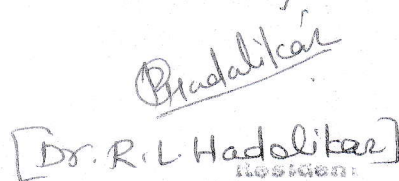 RHadalikar
[Dr. R. L. Hadalikar]
Resident